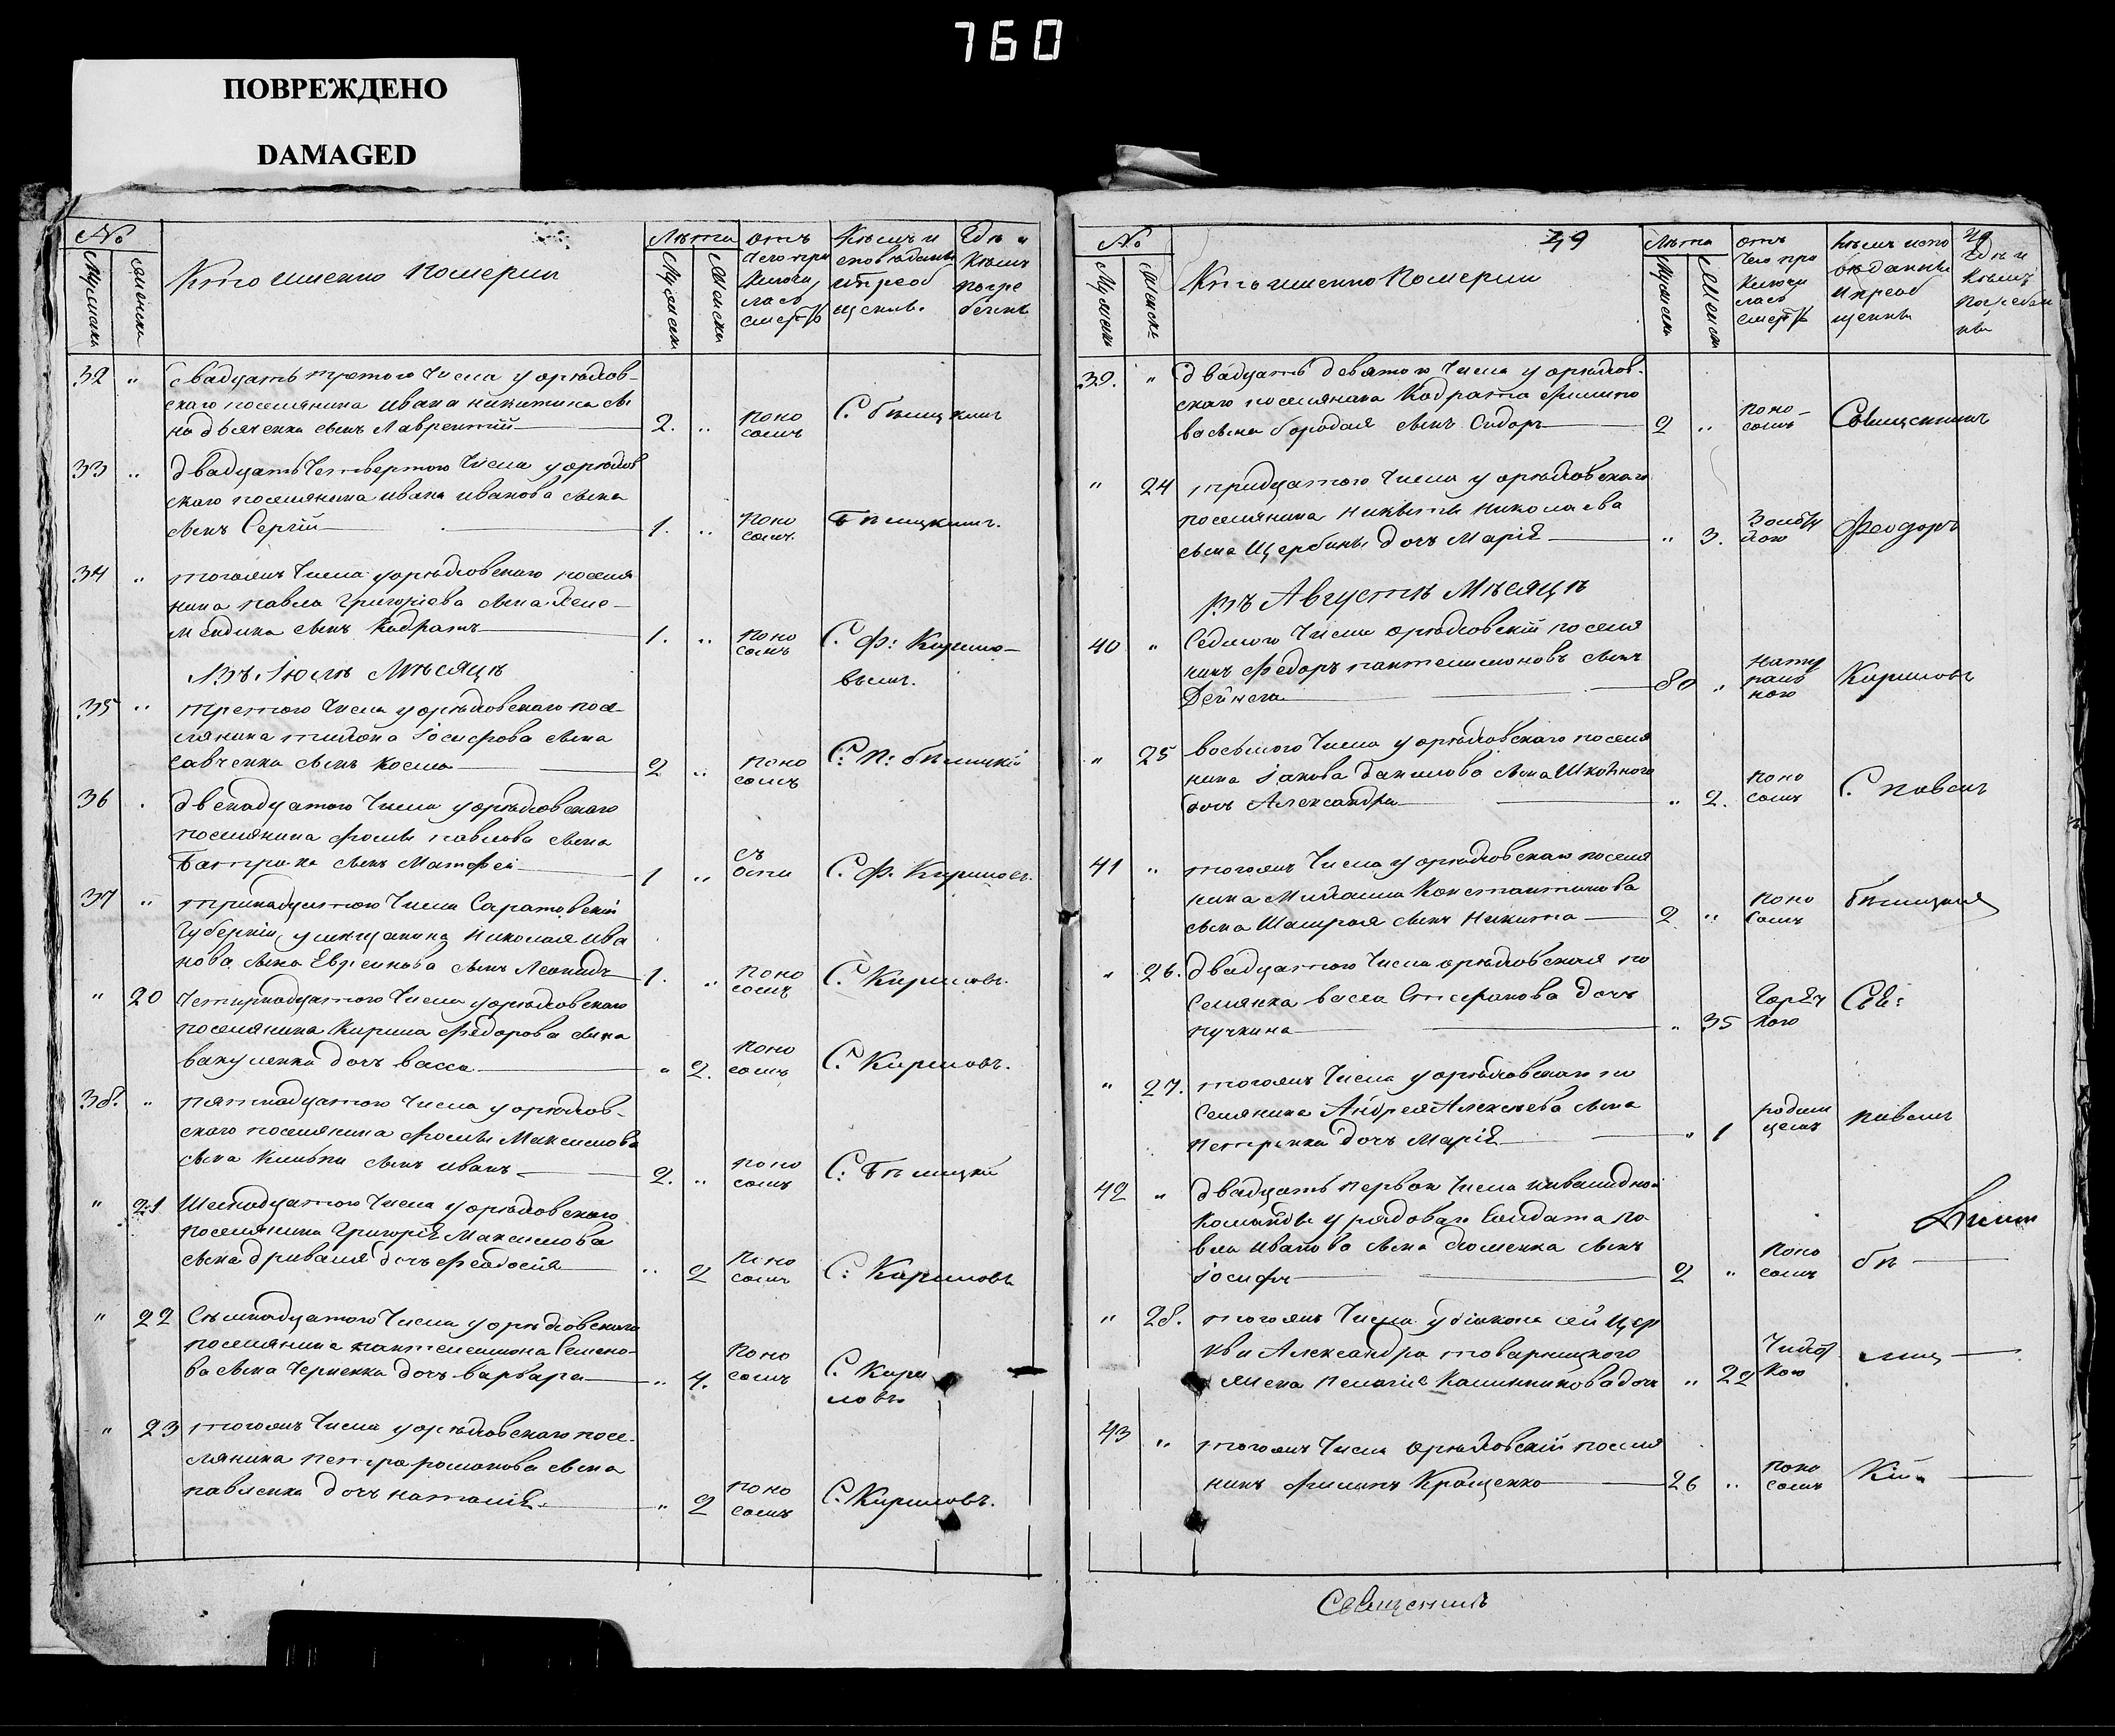 760
ПОВРЕЖДЕНО
DAMAGED
№
Мужеска
женска
Кто именно померли
Лѣта
Мужеска
Женска
отъ
чего при
ключи
лась
смерть
Кѣмъ и
сповѣданы
и приоб
щены.
Гдѣ и
кѣмъ
погре
бены
32 " двадцать третого числа у орѣхов-
скаго поселянина ивана никитина сы
на дьяченка сынъ Лаврентій 2. " поно
сомъ
33 " двадцать четвертого числа у орѣхов
скаго поселянина ивана иванова сына
сынъ Сергій 1. " поно
сомъ
34 " тогожъ числа у орѣховскаго поселя
нина павла григоріева сына
сынъ Кодратъ 1. " поно
сомъ С. Ф: Кирило-
вымъ.
Въ Іюлѣ Мѣсяцѣ
35 " третого числа у орѣховскаго посе-
лянина іосифова сына
савченка сынъ косма 2 " поно
сомъ С. П: бѣлицкій
36 двенадцатого числа у орѣховскаго
поселянина фомы павлова сына
сынъ Матфей 1 " С. Ф. Кириловъ.
37 " тринадцатого числа Саратовскій
губерніи, у мещанина Николая ива
нова сына Евреинова сынъ Леонидъ 1. " поно
сомъ С. Кириловъ.
" 20 четырнадцатого числа у орѣховскаго
поселянина Кирила федорова сына
вакуленка дочь васса " 2. поно
сомъ С. Кириловъ.
38. " пятнадцатого числа у орѣхов-
скаго поселянина фомы Максимова
сына сынъ иванъ 2. " поно
сомъ С: Бѣлицкій
" 21 Шестнадцатого числа у орѣховскаго
поселянина григорія Максимова
сына дочь феодосія " 2 поно
сомъ С: Кириловъ
" 22 Семнадцатого числа у орѣховскаго
поселянина пантелеимона Семено-
ва сына Черненка дочь варвара " 4. поно
сомъ С. Кири
ловъ
" 23 тогожъ числа у орѣховскаго посе-
лянина петра романова сына
павленка дочь наталія. " 2 поно
сомъ С. Кириловъ.
№
Мужеска
Женска
49
Кто именно Померли
Лѣта
Мужеска
Женска
отъ
чего при
ключи
лась
смерть
Кѣмъ испо
вѣданы
и приоб
щены
Гдѣ и
кѣмъ
погребе
ны
39. " двадцать девятого числа у орѣхов-
скаго поселянина Кодрата филипо
ва сына бородая сынъ Сидоръ 2 " поно-
сомъ Священникъ
" 24 тридцатого числа у орѣховскаго
поселянина никиты николаева
сына Щербины дочь Марія " 3. феодоръ
Въ Августѣ Мѣсяцѣ
40 " Седмого числа орѣховскій поселя
нинъ федоръ пантелимоновъ сынъ
Дейнега 80 " нату
раль
ною Кириловъ
" 25 восьмого числа у орѣховскаго поселя
нина іакова данилова сына
дочь Александра " 2. поно
сомъ С. павелъ
41 " тогожъ числа у орѣховскаго поселя
нина Михаила Константинова
сына Шамрая сынъ Никита 2. " поно
сомъ
" 26. двадцатого числа орѣховская по
селянка васса Стефанова дочь
пучкина " 35 горяч
кою Свя:
" 27. тогожъ числа у орѣховскаго по
селянина Андрея Алексѣева сына
петренка дочь Марія " 1 родим
цемъ павелъ
42 " двадцать первого числа инвалидной
команды у рядоваго Солдата па
вла иванова сына сынъ
іосифъ 2 " поно
сомъ бѣ
" 28. тогожъ числа у діакона сей цер
кви Александра товарницкого
жена пелагія Калинникова дочь " 22 чахот
кою лиц
43 " тогожъ числа орѣховскій поселя
нинъ филипъ Кращенко 26 " поно
сомъ Кій
Священникъ